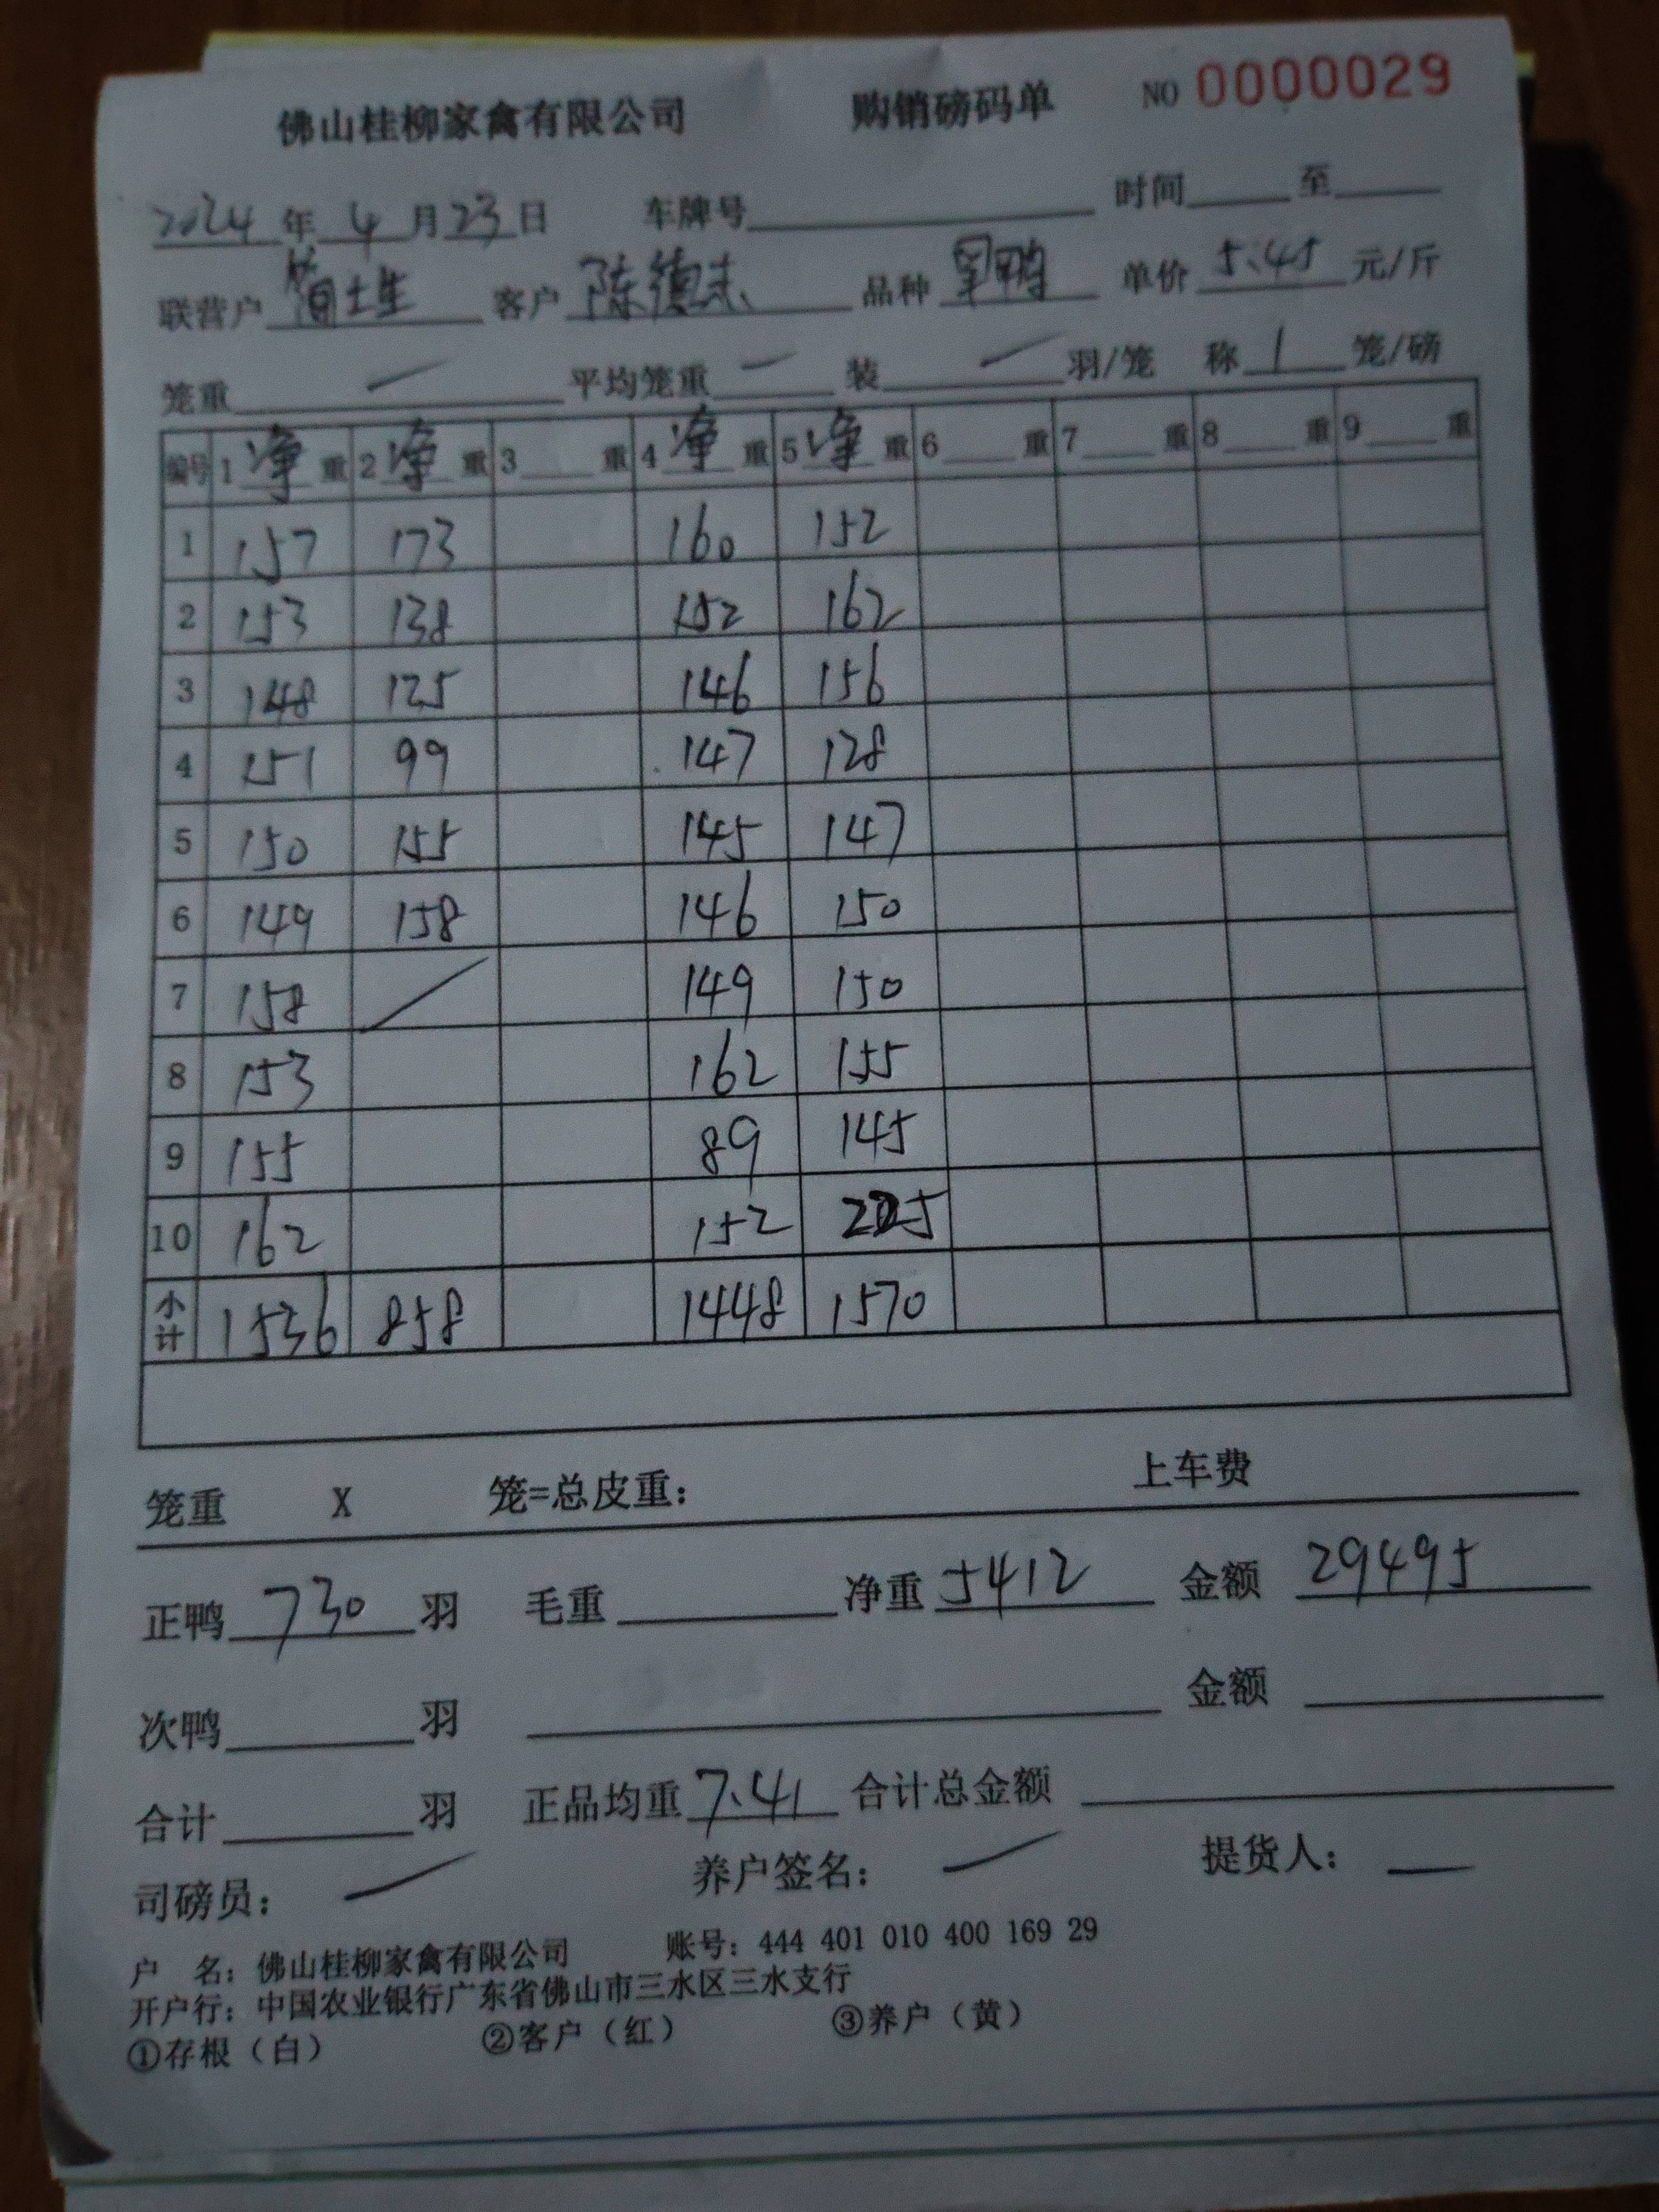 佛山桂柳家禽有限公司 购销磅码单 NO 0000029
2024年4月23日 车牌号 时间 至
联营户 简土生 客户 陈德志 品种 军鸭 单价 5.45 元/斤
笼重 平均笼重 装 羽/笼 称 1 笼/磅
编号 1 净 重 2 净 重 3 重 4 净 重 5 净 重 6 重 7 重 8 重 9 重
1 157 173 160 152
2 153 138 152 162
3 148 125 146 156
4 151 99 147 128
5 150 155 145 147
6 149 158 146 150
7 158 149 150
8 153 162 155
9 155 89 145
10 162 152 225
小计 1536 858 1448 1570
笼重 X 笼=总皮重: 上车费
正鸭 730 羽 毛重 净重 5412 金额 29495
次鸭 羽 金额
合计 羽 正品均重 7.41 合计总金额
司磅员: 养户签名: 提货人:
户 名: 佛山桂柳家禽有限公司 账号: 444 401 010 400 169 29
开户行: 中国农业银行广东省佛山市三水区三水支行
①存根（白） ②客户（红） ③养户（黄）